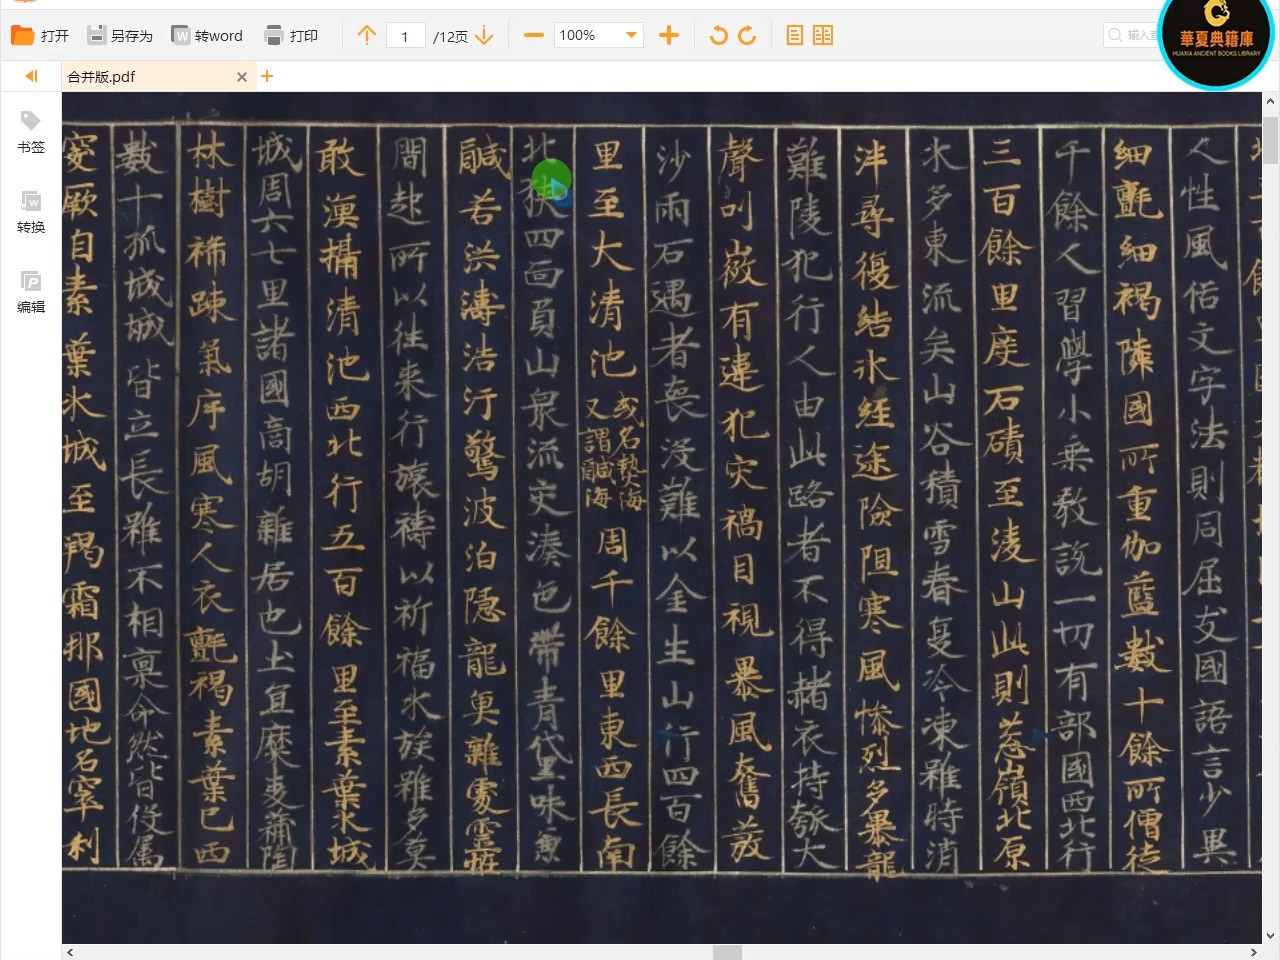 打开
另存为
转word
打印
1
/12页
100%
華夏典籍庫
HUAXIA ANCIENT BOOKS LIBRARY
合并版.pdf
书签
转换
编辑
人性風俗文字法則同屈支國語言少異
細氈細褐隣國所重伽藍數十餘所僧徒
千餘人習學小乗教説一切有部國西北行
三百餘里度石磧至淩山此則葱嶺北原
水多東流矣山谷積雪春夏冷凍雖時消
泮尋復結氷經途險阻寒風慘烈多暴龍
難陵犯行人由此路者不得赭衣持瓠大
聲叫微有違犯灾禍目視暴風奮發
沙雨石遇者喪没難以全生山行四百餘
里至大清池或名熱海又謂鹹海周千餘里東西長南
北狹四面負山衆流交湊色帶青黑味兼
鹹苦洪濤浩汗驚波泊隱龍魚雜處靈怪
間起所以往来行旅禱以祈福水族雖多莫
敢漁捕清池西北行五百餘里至素葉水城
城周六七里諸國商胡雜居也土宜糜麦蒲陶
林樹稀疎氣序風寒人衣氈褐素葉已西
數十孤城城皆立長雖不相禀命然皆役屬
突厥自素葉水城至羯霜那國地名窣利